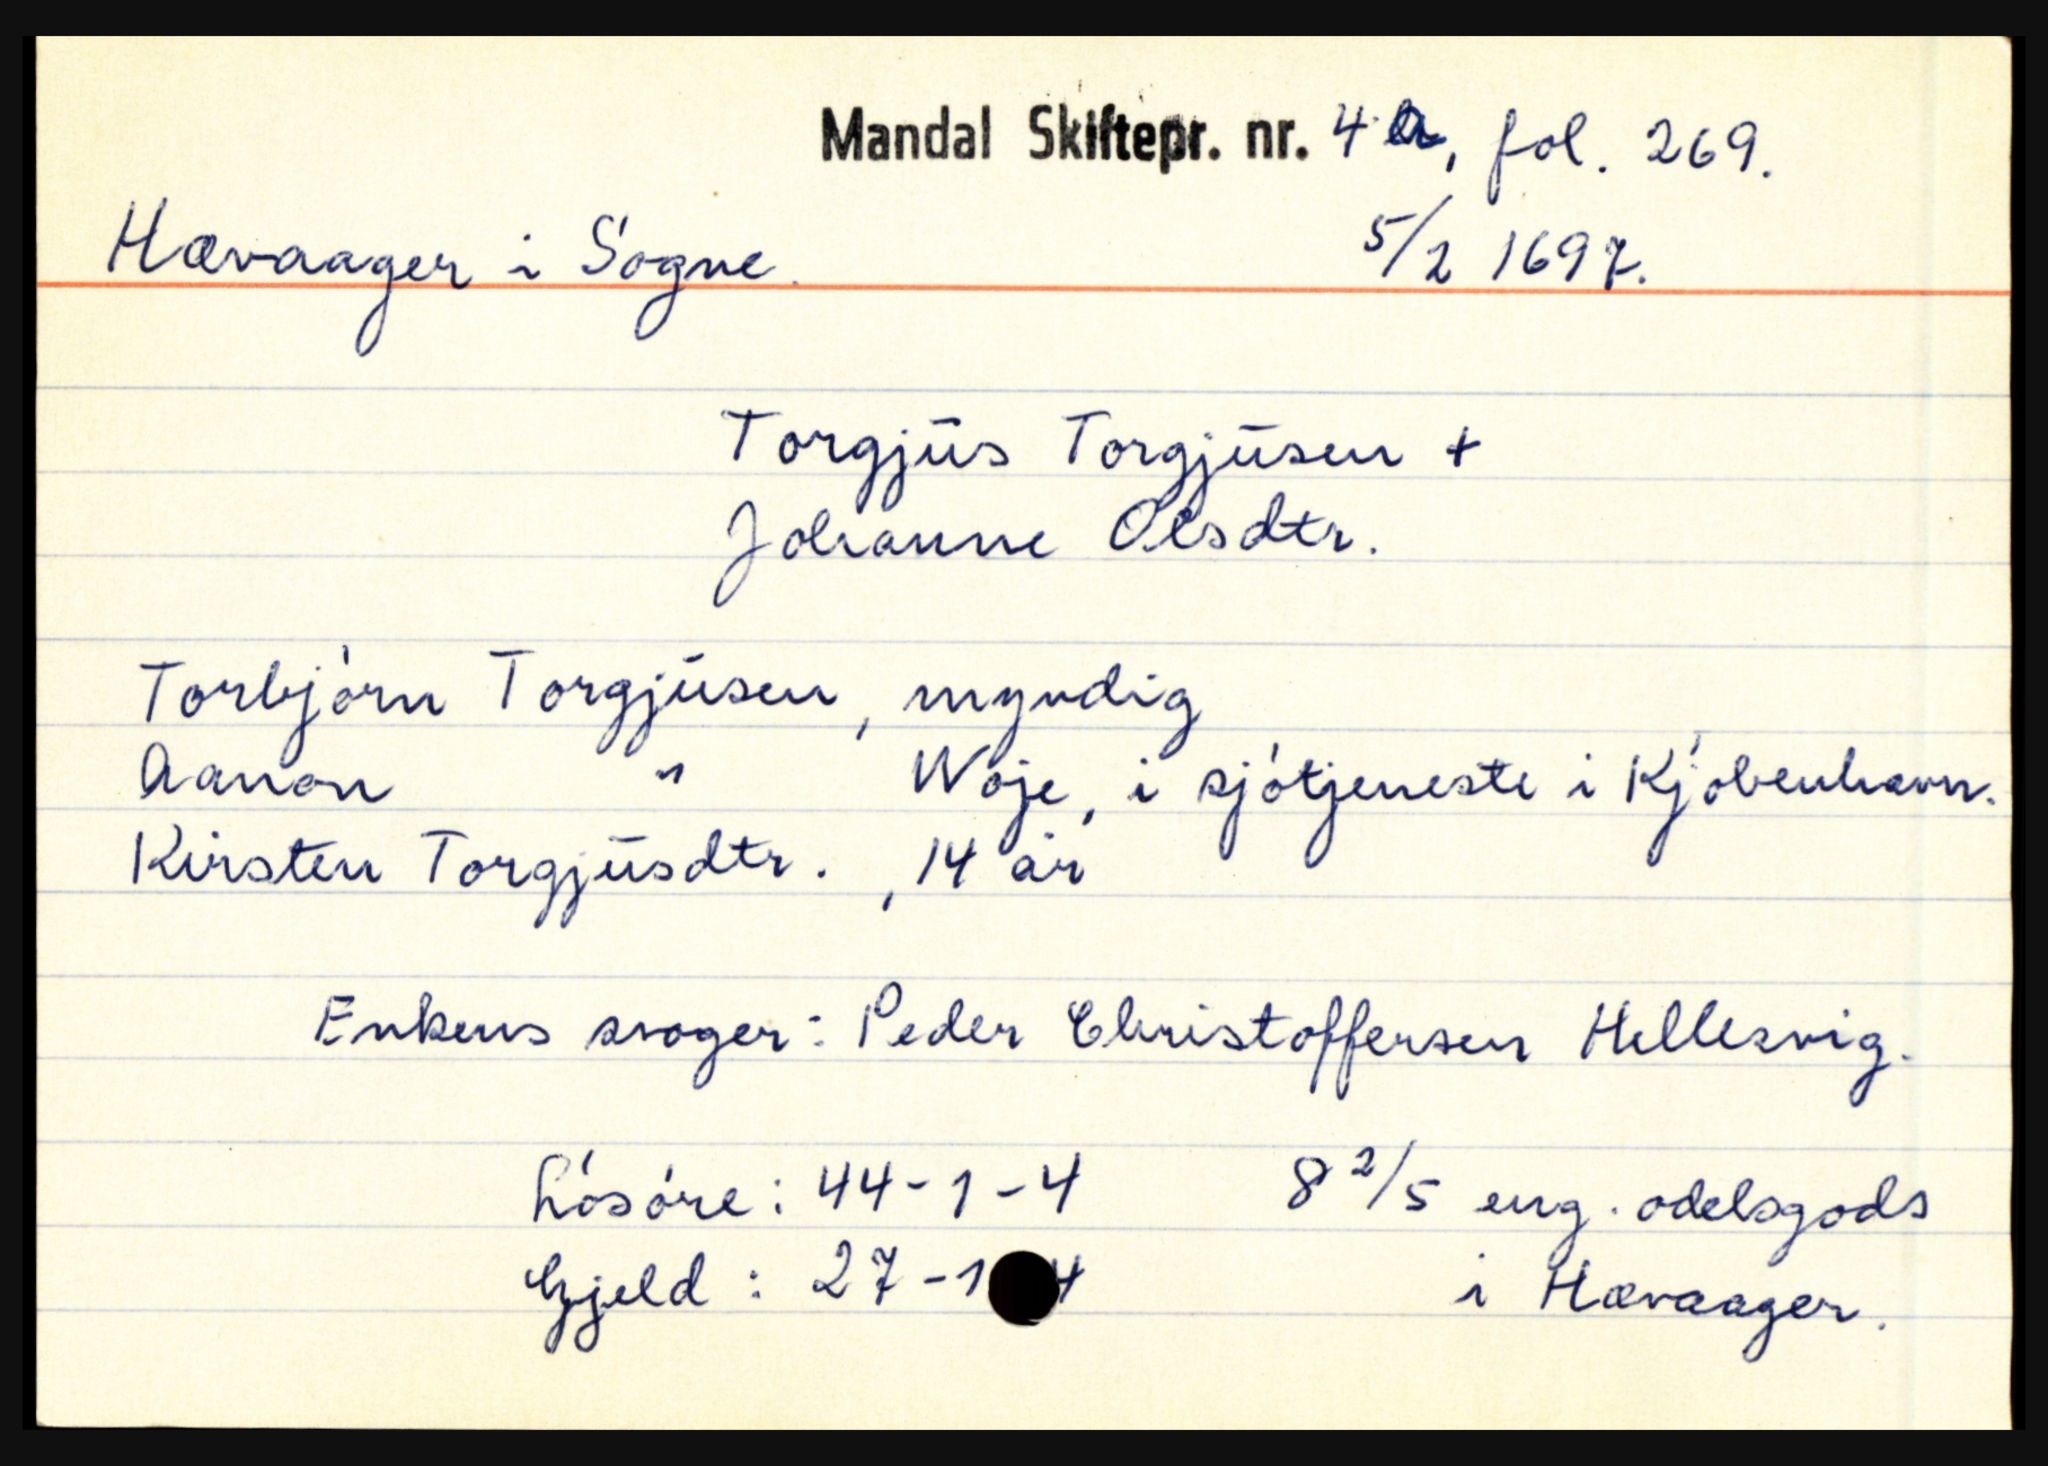 Mandal Skiftepr. nr. 4 a, fol. 269.
Hævaager i Søgne. 5/2 1697.
Torgjus Torgjusen +
Johanne Olsdtr.
Torbjørn Torgjusen, myndig
Aanon " Woje, i sjøtjeneste i Kjøbenhavn.
Kirsten Torgjusdtr., 14 år
Enkens svoger: Peder Christoffersen Hellesvig.
Løsøre: 44-1-4 8 2/5 eng. odelsgods
Gjeld: 27-1-4 i Hævaager.